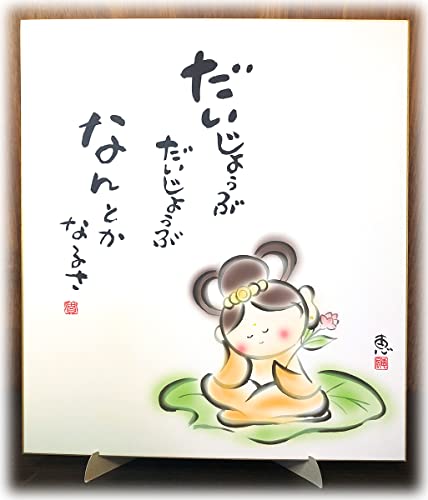 だいじょうぶ
だいじょうぶ
なんとか
なるさ
恵